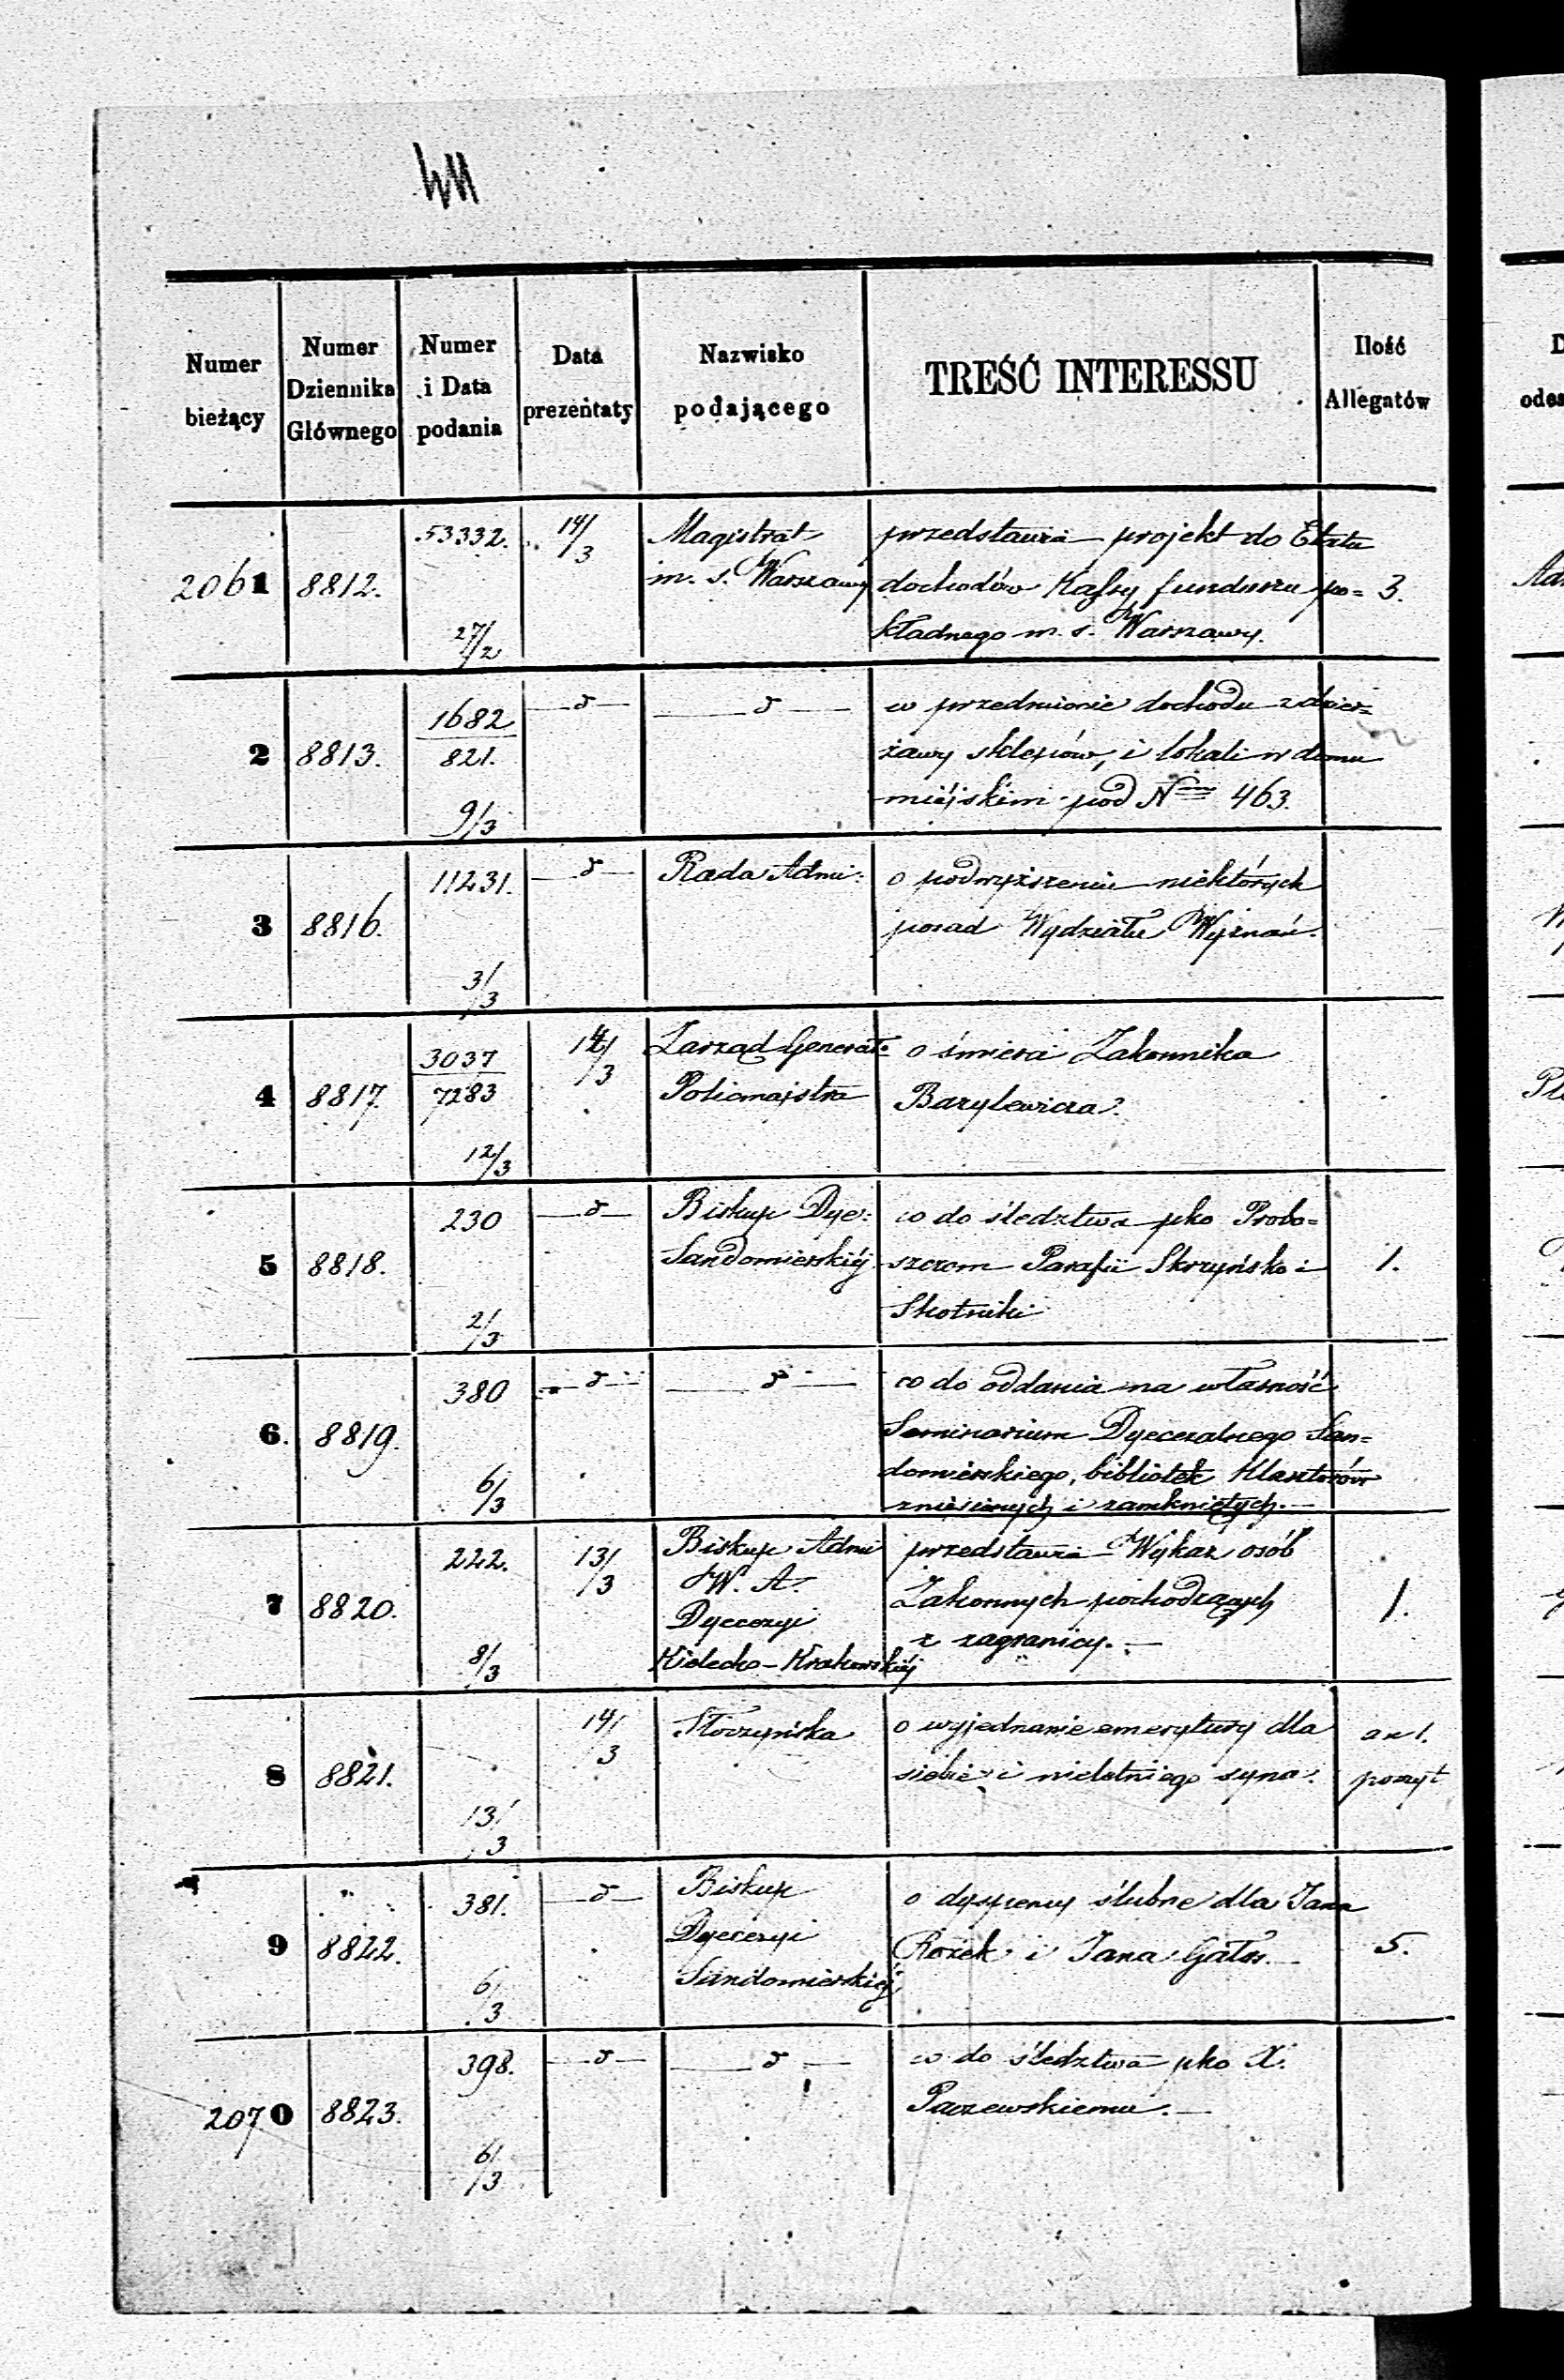 Numer bieżący | Numer Dziennika Głównego | Numer i Data podania | Data prezentaty | Nazwisko podającego | TREŚĆ INTERESSU | Ilość Allegatów
2061 | 8812. | 53332. 27/2 | 14/3 | Magistrat | przedstawia projekt do Etatu | 3.
m. s. Warszawy | dochodów Kassy funduszu po=
kładnego m. s. Warszawy.
2 | 8813. | 1682/821. 9/3 | —d— | —d— | w przedmiocie dochodu z dzier=
żawy sklepów, i lokali w domu
miéjskim pod Nrm 463.
3 | 8816. | 11231. 3/3 | —d— | Rada Admi: | o podwyższeniu niektórych
posad Wydziału Wyznań.
4 | 8817. | 3037/7283 12/3 | 14/3 | Zarząd Generał= | o śmierci Zakonnika
Policmajstra | Bazylewicza.
5 | 8818. | 230 2/3 | —d— | Biskup Dye: | co do śledztwa pko Probo=
Sandomierskiéj | szczom Parafii Skrzyńsko i | 1.
Skotniki
6. | 8819. | 380 6/3 | —d— | —d— | co do oddania na własność
Seminarium Dyecezalnego San=
domierskiego, bibliotek Klasztorów
zniesionych i zamkniętych.—
7 | 8820. | 222. 8/3 | 13/3 | Biskup Admi | przedstawia Wykaz osób
W. A. | Zakonnych pochodzących | 1.
Dyecezyi | z zagranicy.—
Kielecko-Krakowskiéj
8 | 8821. | 13/3 | 14/3 | Słoczyńska | o wyjednanie emerytury dla
siebie i nieletniego syna.
9 | 8822. | 381. 6/3 | —d— | Biskup | o dyspensy ślubne dla Jana
Dyecezyi | Rozek i Jana Gałos.— | 5.
Sandomierskiéj
2070 | 8823. | 398. 6/3 | —d— | —d— | co do śledztwa pko X.
Paczewskiemu.—